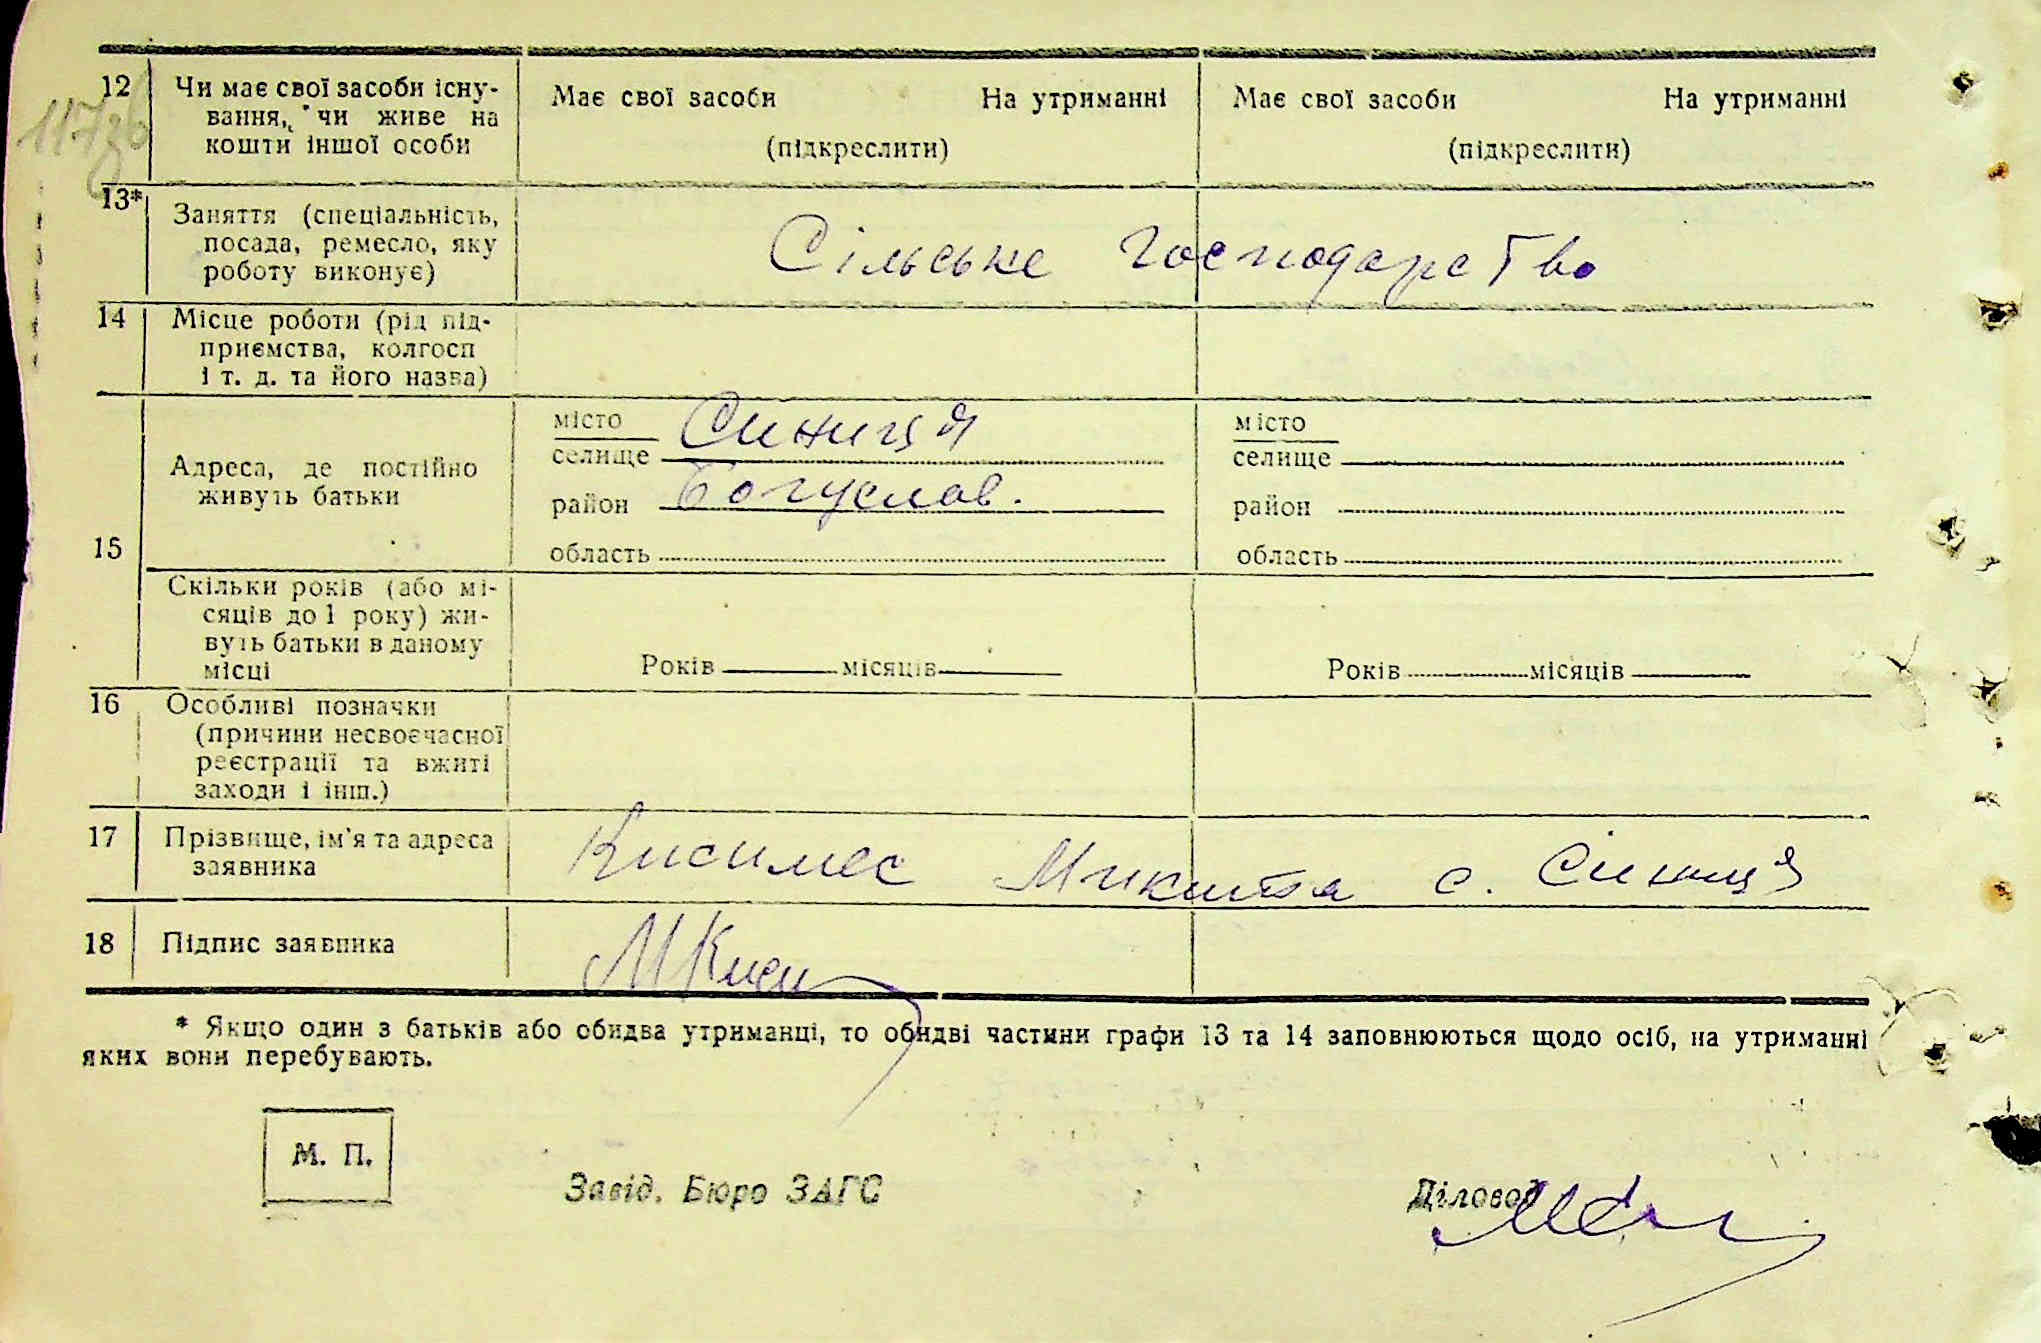 117зв
12 Чи має свої засоби існу-
вання, чи живе на
кошти іншої особи
Має свої засоби На утриманні
(підкреслити)
Має свої засоби На утриманні
(підкреслити)
13* Заняття (спеціальність,
посада, ремесло, яку
роботу виконує)
Сільське Господарство
14 Місце роботи (рід під-
приємства, колгосп
і т. д. та його назва)
15 Адреса, де постійно
живуть батьки
місто
селище Синиця
район Богуслав.
область
місто
селище
район
область
Скільки років (або мі-
сяців до 1 року) жи-
вуть батьки в даному
місці
Років місяців
Років місяців
16 Особливі позначки
(причини несвоєчасної
реєстрації та вжиті
заходи і інш.)
17 Прізвище, ім'я та адреса
заявника
Микита с. Синиця
18 Підпис заявника
* Якщо один з батьків або обидва утриманці, то обидві частини графи 13 та 14 заповнюються щодо осіб, на утриманні
яких вони перебувають.
М. П.
Завід. Бюро ЗАГС
Діловод